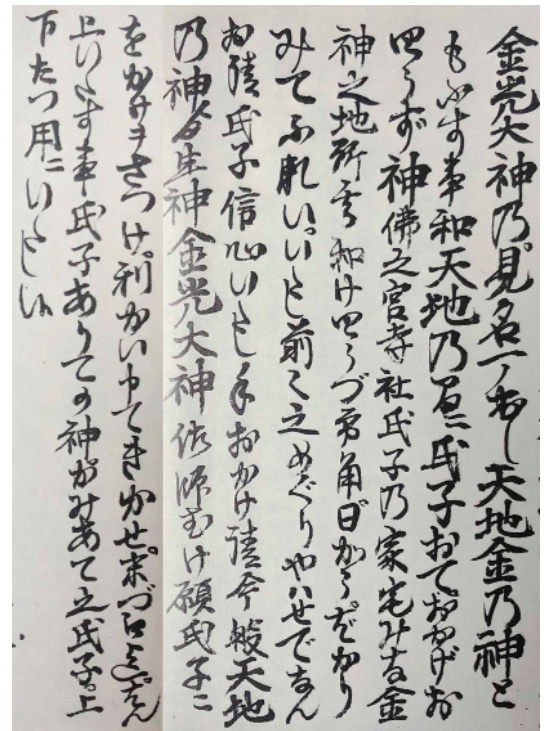 金光大神乃見名天地金乃神と
もふす事和天地乃間ニ氏子おておかげお
四らず神佛之宮寺社氏子乃家宅みな金
神之地所わけ四らづ方角日がらばかり
みてふ礼いいたし前々之めぐりやハせでなん
お請氏子信心いたしておかけ請今般天地
乃神より生神金光大神佐むけ願氏子ニ
をかけヲさづけ利かい申てきかせ末づはんじよう
いたす事氏子ありての神かみあて之氏子上
下たつ用ニいたし候